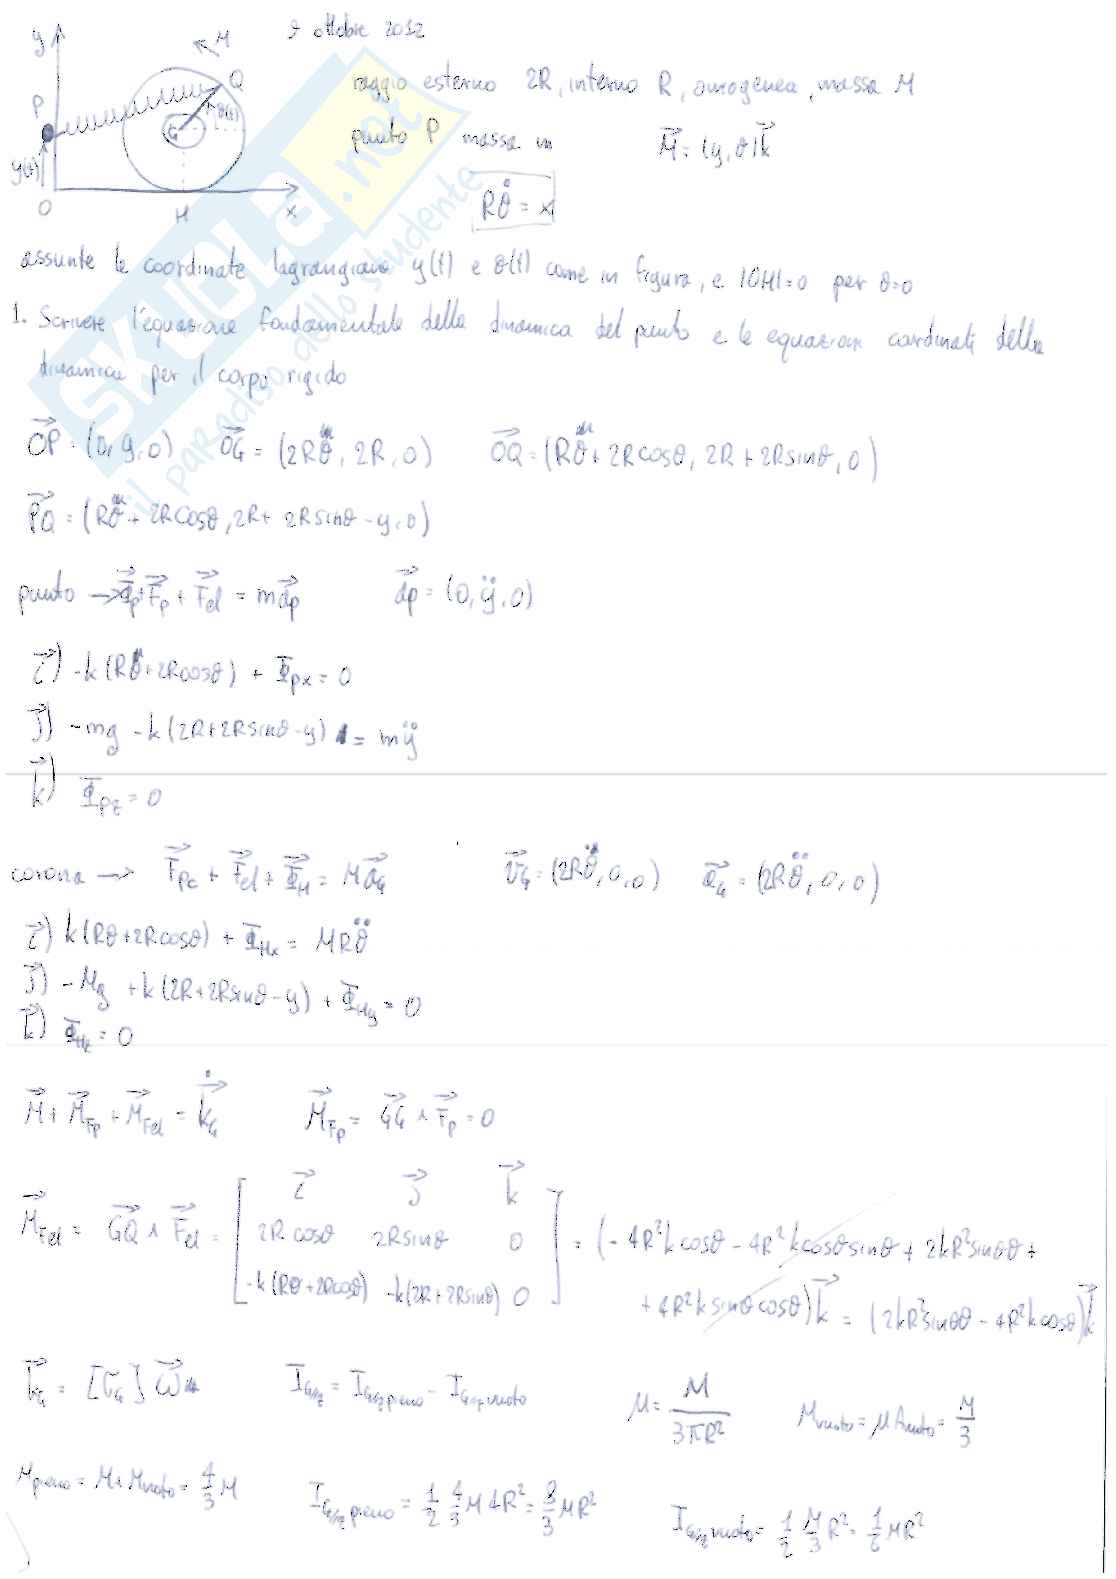 9 ottobre 2012
y M Q P G θ(t) y(t) O H x
raggio esterno 2R, interno R, omogenea, massa M
punto P massa m M⃗ = (y, θ)k⃗
Rθ̈ = x
assunte le coordinate lagrangiane y(t) e θ(t) come in figura, e |OH|=0 per θ=0
1. Scrivere l'equazione fondamentale della dinamica del punto e le equazioni cardinali della
dinamica per il corpo rigido
OP⃗ = (0, y, 0) OG⃗ = (2Rθ, 2R, 0) OQ⃗ = (Rθ + 2Rcosθ, 2R + 2Rsinθ, 0)
PQ⃗ = (Rθ + 2Rcosθ, 2R + 2Rsinθ - y, 0)
punto → Φ⃗p + F⃗p + F⃗el = m a⃗p a⃗p = (0, ÿ, 0)
i⃗) -k(Rθ + 2Rcosθ) + Φpx = 0
j⃗) -mg - k(2R + 2Rsinθ - y) = mÿ
k⃗) Φpz = 0
corona → F⃗pc + F⃗el + Φ⃗H = M a⃗G v⃗G = (2Rθ̇, 0, 0) a⃗G = (2Rθ̈, 0, 0)
i⃗) k(Rθ + 2Rcosθ) + ΦHx = MRθ̈
j⃗) -Mg + k(2R + 2Rsinθ - y) + ΦHy = 0
k⃗) ΦHz = 0
M⃗ + M⃗Fp + M⃗Fel = k̇⃗G M⃗Fp = GG⃗ ∧ F⃗p = 0
i⃗ j⃗ k⃗
M⃗Fel = GQ⃗ ∧ F⃗el = [ 2Rcosθ 2Rsinθ 0 ] = (-4R²kcosθ - 4R²kcosθsinθ + 2kR²sinθθ +
-k(Rθ + 2Rcosθ) -k(2R + 2Rsinθ) 0 + 4R²ksinθcosθ)k⃗ = (2kR²sinθθ - 4R²kcosθ)k⃗
k⃗G = [σG] ω⃗ IG,z = IG,z pieno - IG,z vuoto μ = M / 3πR² Mvuoto = μAvuoto = M/3
Mpieno = M + Mvuoto = 4/3 M IG,z pieno = 1/2 4/3 M 4R² = 8/3 MR² IG,z vuoto = 1/2 M/3 R² = 1/6 MR²
SKUOLA.net
il paradiso dello studente